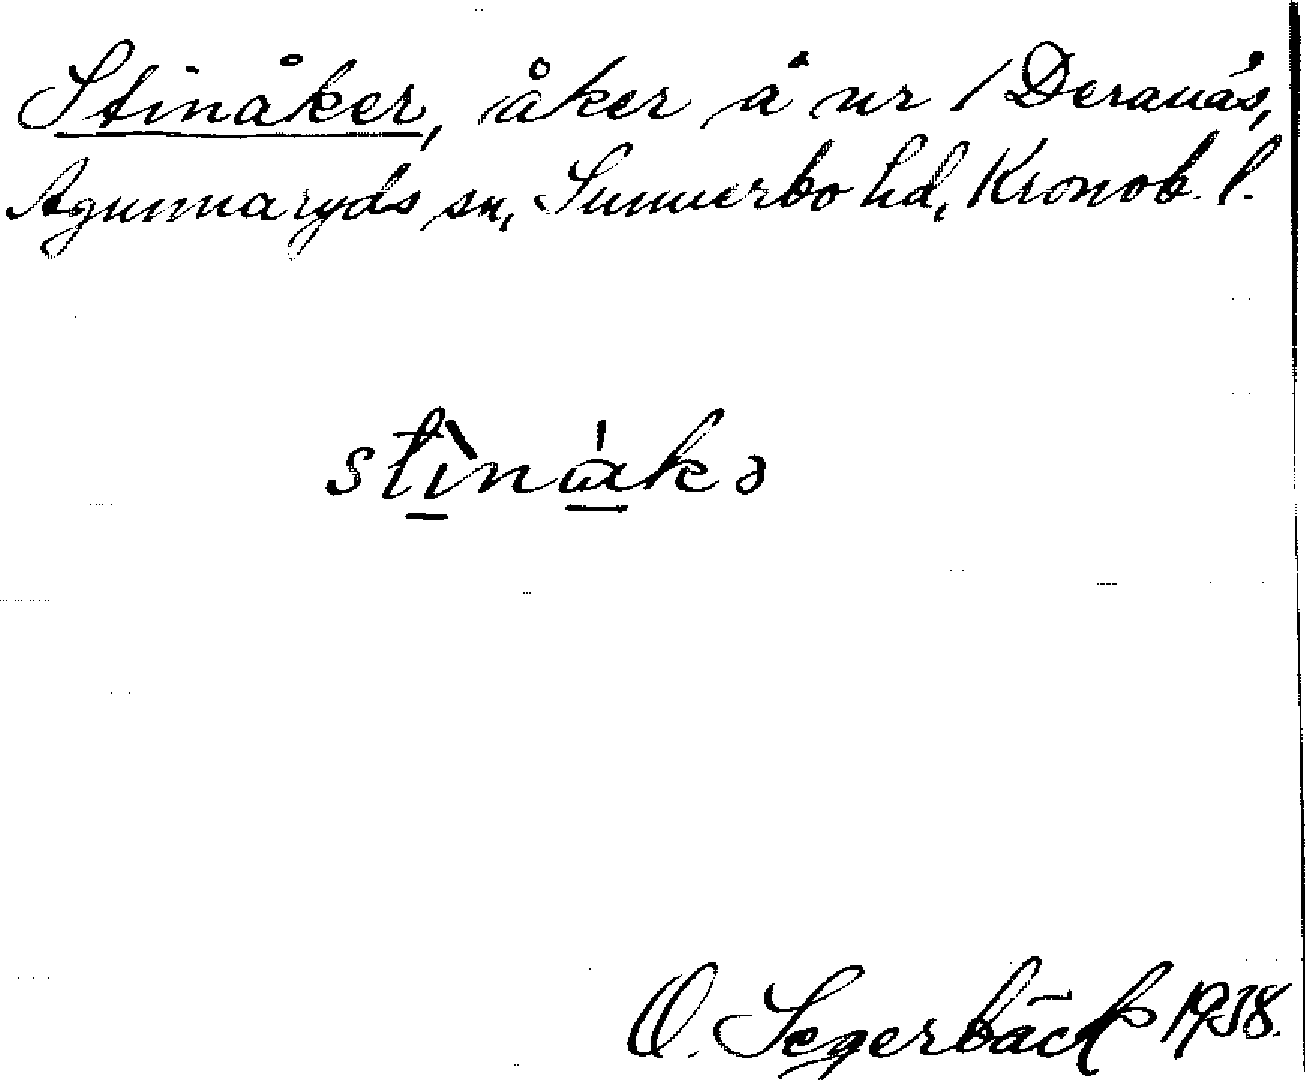 Stinåker, åker å nr 1 Deranäs,
Agunnaryds sn, Sunnerbo hd, Kronob. l.
stìnákə
O. Segerbäck 1938.